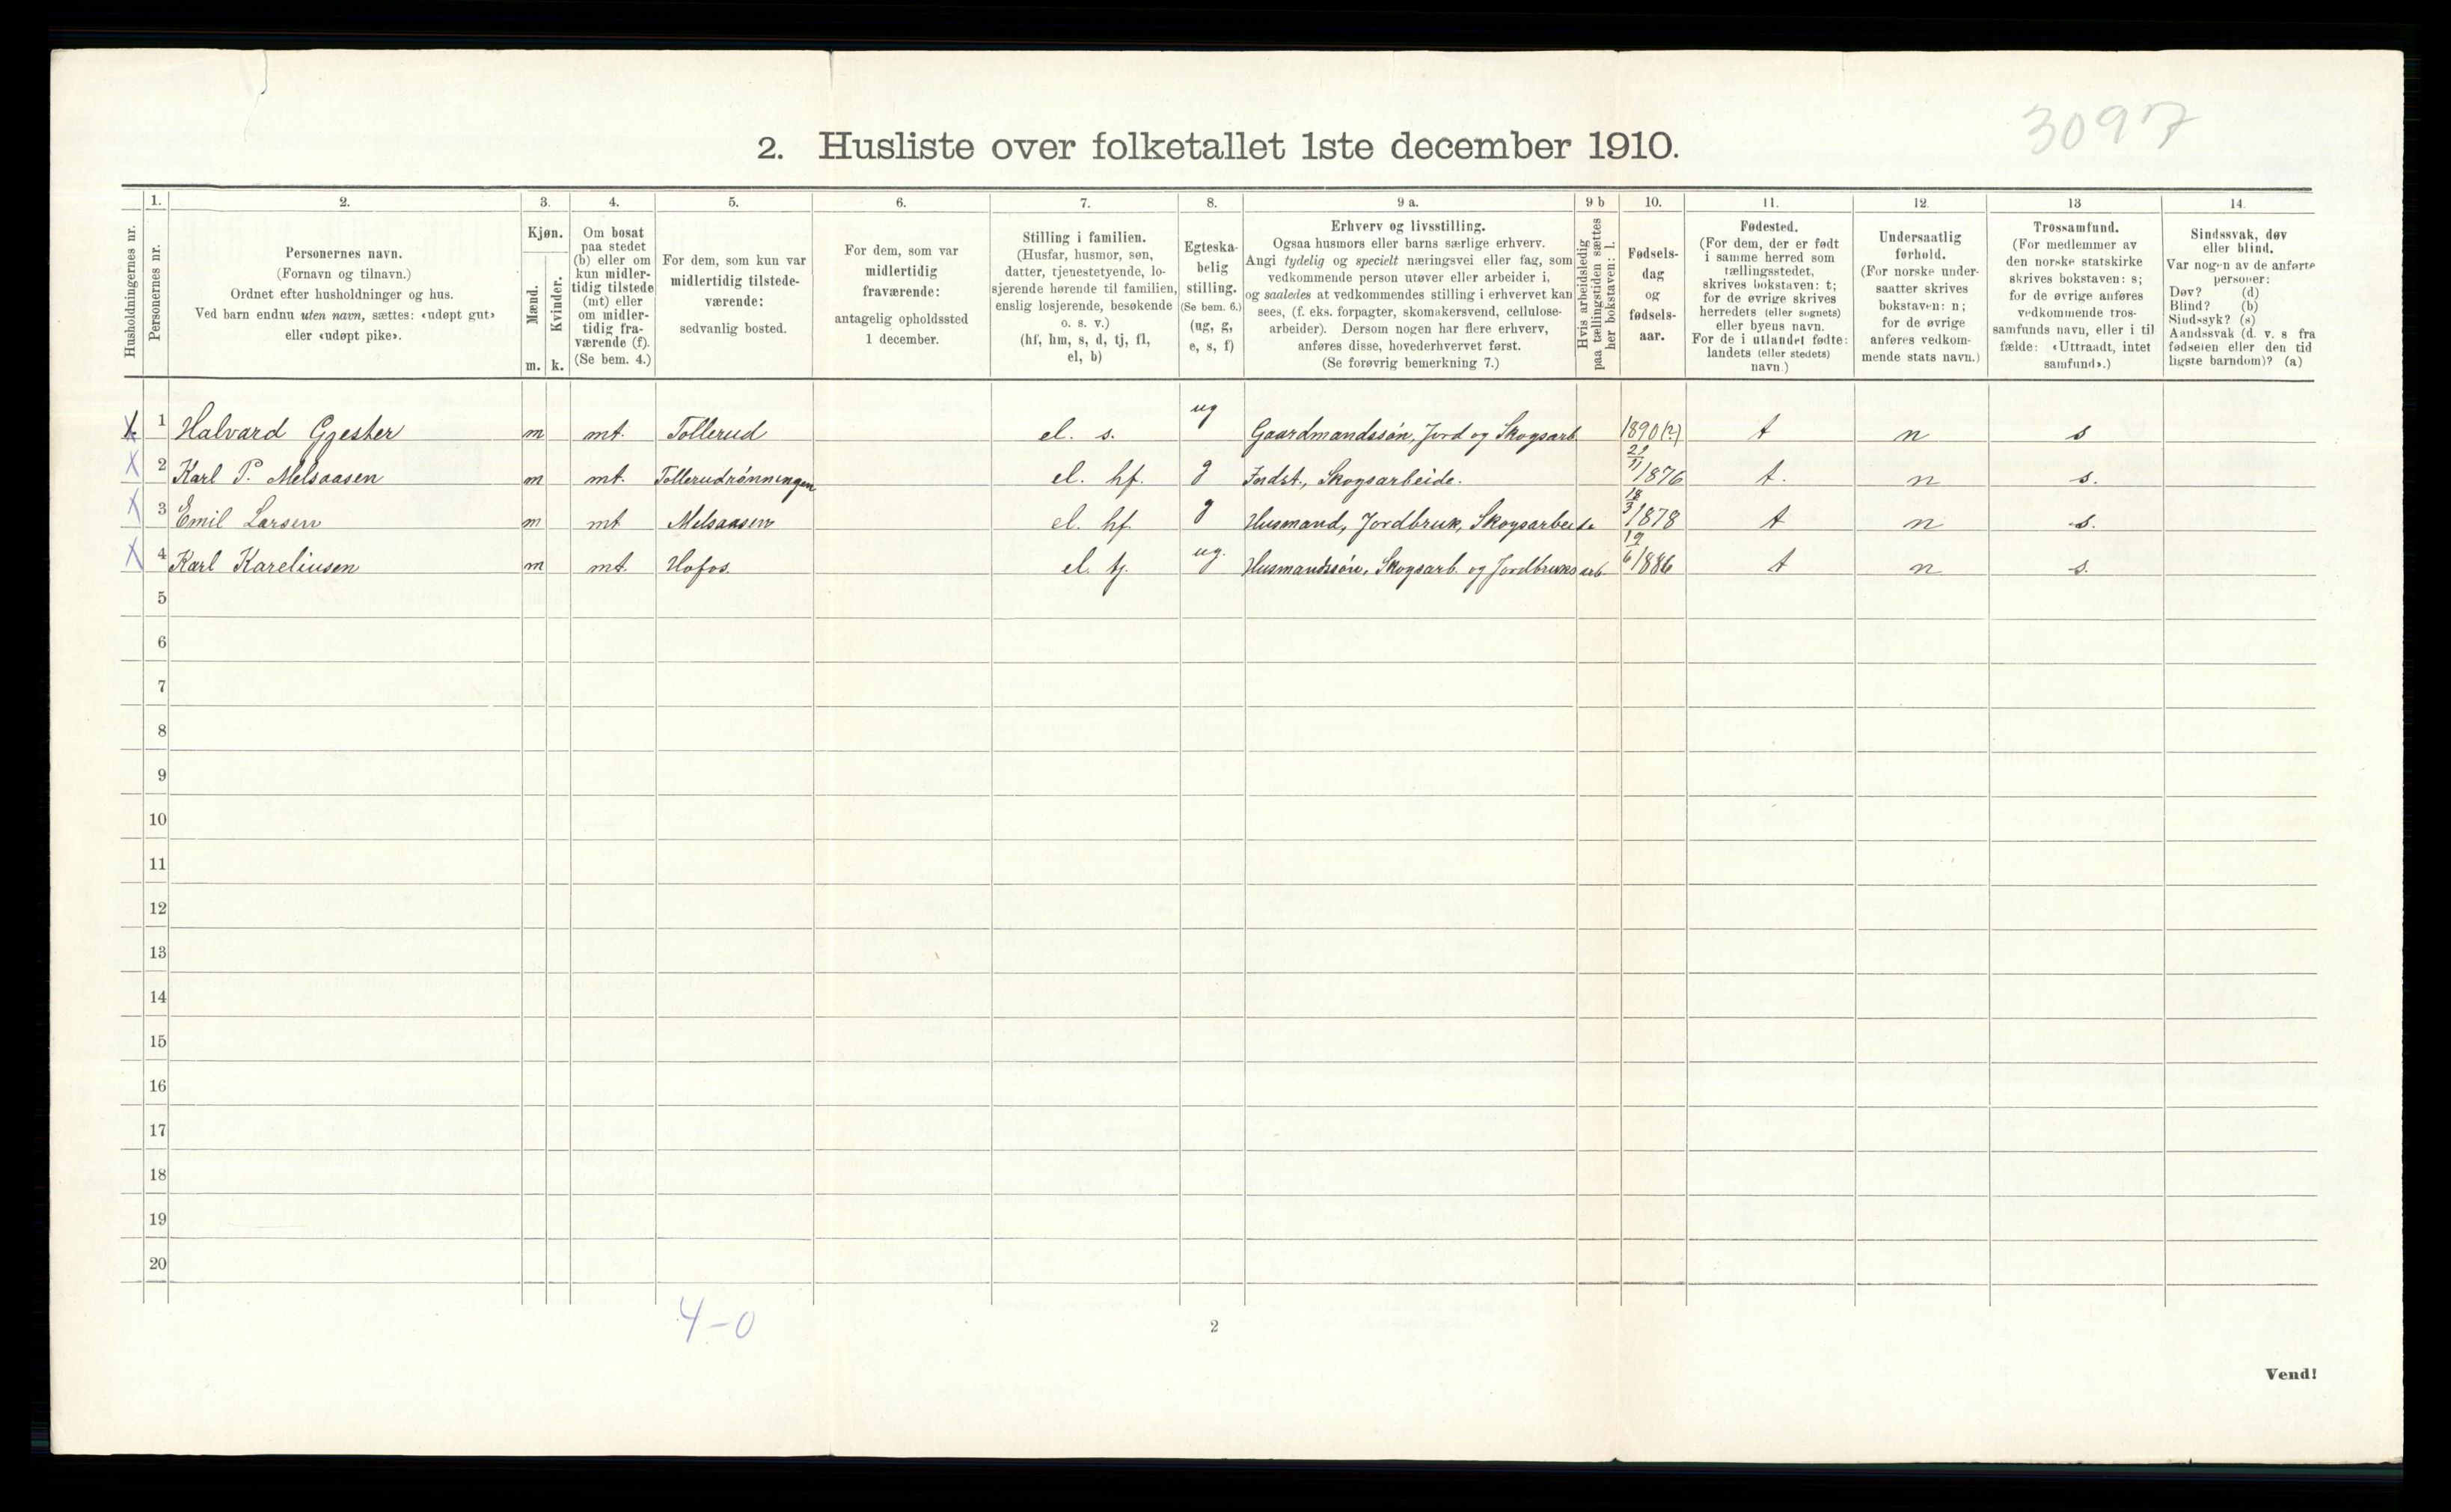 3097
2. Husliste over folketallet 1ste december 1910.
Husholdningernes nr.
1. Personernes nr.
2. Personernes navn. (Fornavn og tilnavn.) Ordnet efter husholdninger og hus. Ved barn endnu uten navn, sættes: «udøpt gut» eller «udøpt pike».
3. Kjøn. Mænd. m. Kvinder. k.
4. Om bosat paa stedet (b) eller om kun midlertidig tilstede (mt) eller om midlertidig fraværende (f). (Se bem. 4.)
5. For dem, som kun var midlertidig tilstedeværende: sedvanlig bosted.
6. For dem, som var midlertidig fraværende: antagelig opholdssted 1 december.
7. Stilling i familien. (Husfar, husmor, søn, datter, tjenestetyende, losjerende hørende til familien, enslig losjerende, besøkende o. s. v.) (hf, hm, s, d, tj, fl, el, b)
8. Egteskabelig stilling. (Se bem. 6.) (ug, g, e, s, f)
9 a. Erhverv og livsstilling. Ogsaa husmors eller barns særlige erhverv. Angi tydelig og specielt næringsvei eller fag, som vedkommende person utøver eller arbeider i, og saaledes at vedkommendes stilling i erhvervet kan sees, (f. eks. forpagter, skomakersvend, cellulosearbeider). Dersom nogen har flere erhverv, anføres disse, hovederhvervet først. (Se forøvrig bemerkning 7.)
9 b Hvis arbeidsledig paa tællingstiden sættes her bokstaven: l.
10. Fødselsdag og fødselsaar.
11. Fødested. (For dem, der er født i samme herred som tællingsstedet, skrives bokstaven: t; for de øvrige skrives herredets (eller sognets) eller byens navn. For de i utlandet fødte: landets (eller stedets) navn.)
12. Undersaatlig forhold. (For norske undersaatter skrives bokstaven: n; for de øvrige anføres vedkommende stats navn.)
13 Trossamfund. (For medlemmer av den norske statskirke skrives bokstaven: s; for de øvrige anføres vedkommende trossamfunds navn, eller i tilfælde: «Uttraadt, intet samfund».)
14. Sindssvak, døv eller blind. Var nogen av de anførte personer: Døv? (d) Blind? (b) Sindssyk? (s) Aandssvak (d. v. s. fra fødselen eller den tidligste barndom)? (a)
1 Halvard Gjester m mt. Tollerud el. s. ug Gaardmandssøn, Jord og Skogsarb. 1890(?) t n s
2 Karl P. Melsaasen m mt. Tollerudrønningen el. hf. g Indst., Skogsarbeide. 21/11 1876 t. n s.
3 Emil Larsen m mt Melsaasen el. hf. g Husmand, Jordbruk, Skogsarbeide 18/3 1878 t n s.
4 Karl Kareliusen m mt. Hofos. el. tj. ug. Husmandssøn, Skogsarb. og Jordbruksarb. 19/6 1886 t n s.
5
6
7
8
9
10
11
12
13
14
15
16
17
18
19
20
4-0
2
Vend!